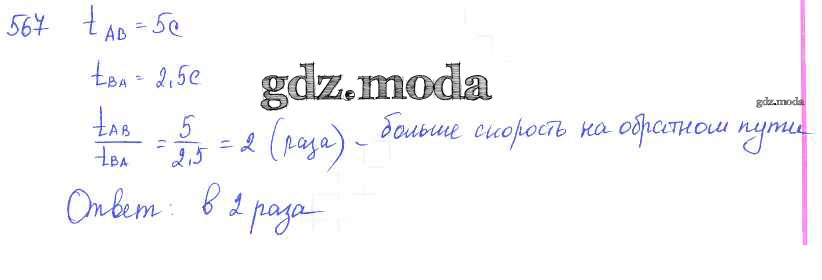 567 t_AB = 5с
t_BA = 2,5с
gdz.moda
gdz.moda
t_AB / t_BA = 5 / 2,5 = 2 (раза) – больше скорость на обратном пути
Ответ: в 2 раза